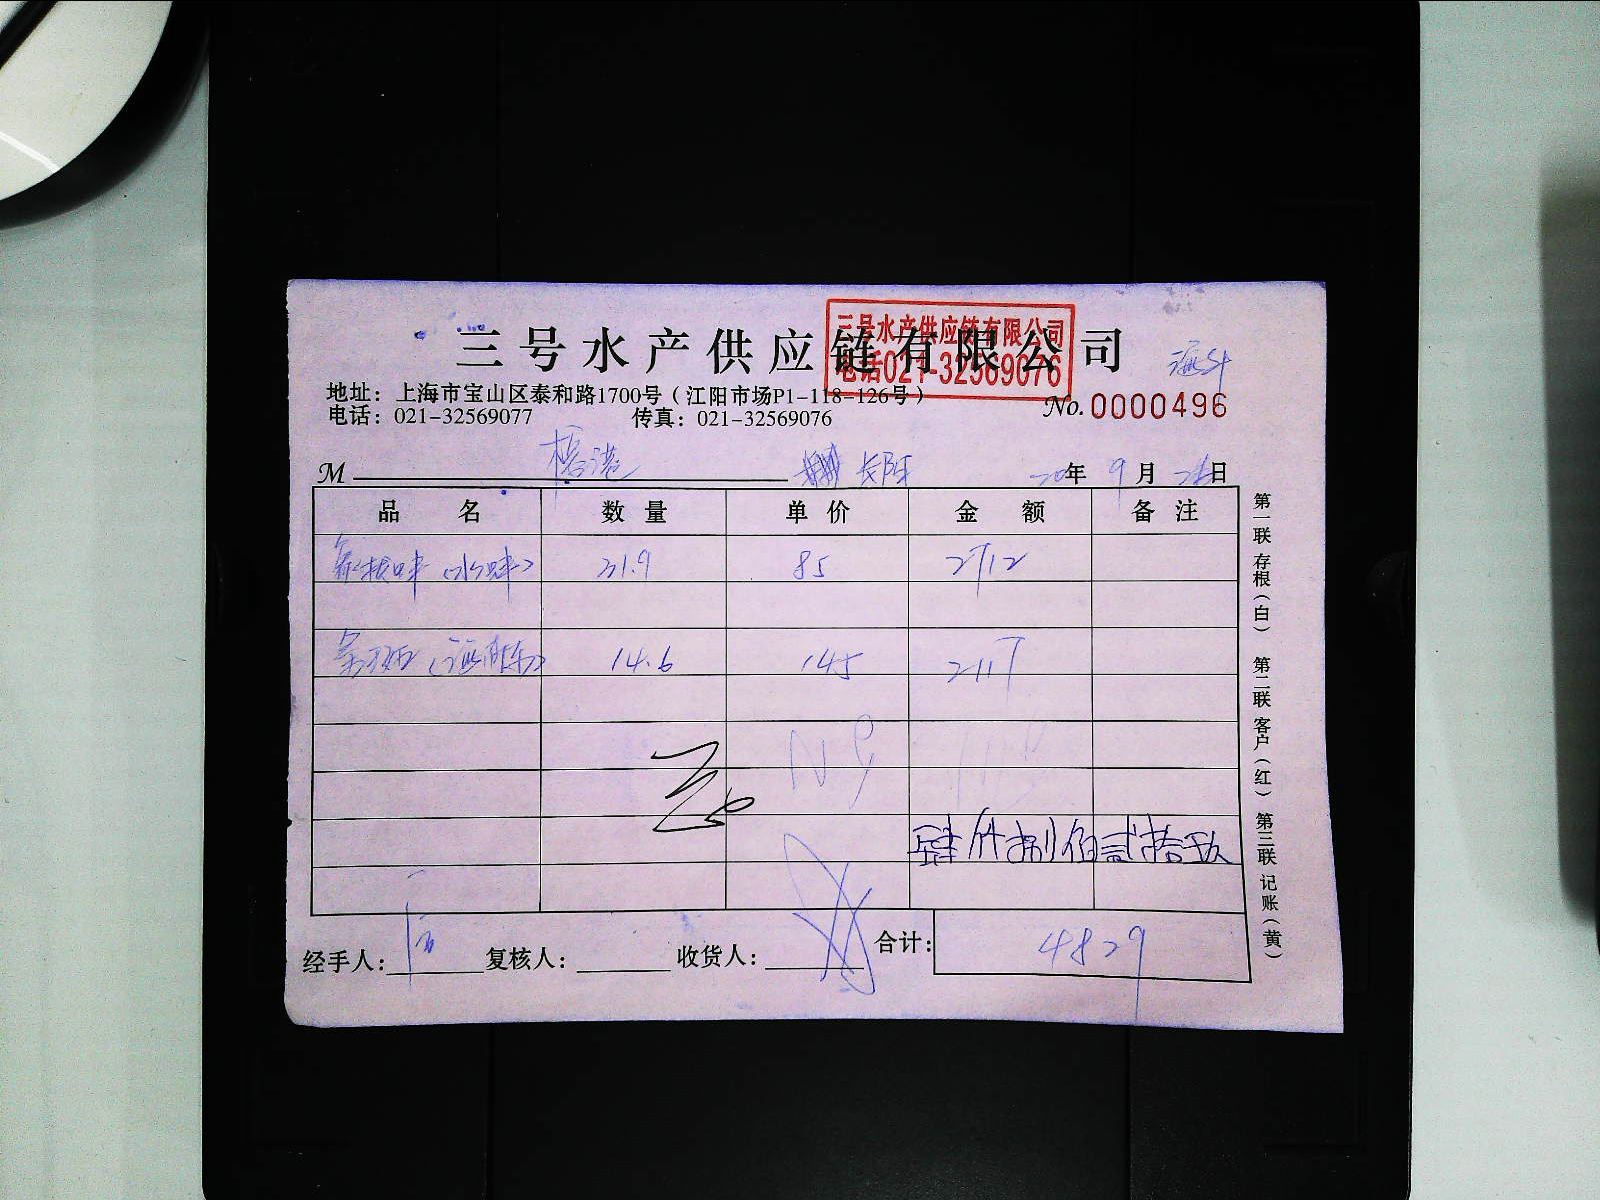 三号水产供应链有限公司
三号水产供应链有限公司
电话021-32569076
地址：上海市宝山区泰和路1700号（江阳市场P1-118-126号）
电话：021-32569077 传真：021-32569076
No.0000496
M 年 9月 日
品 名 数 量 单 价 金 额 备 注
31.9 85 2712
14.6 145 2117
肆仟捌佰贰拾玖
经手人： 复核人： 收货人： 合计： 4829
第一联 存根（白） 第二联 客户（红） 第三联 记账（黄）